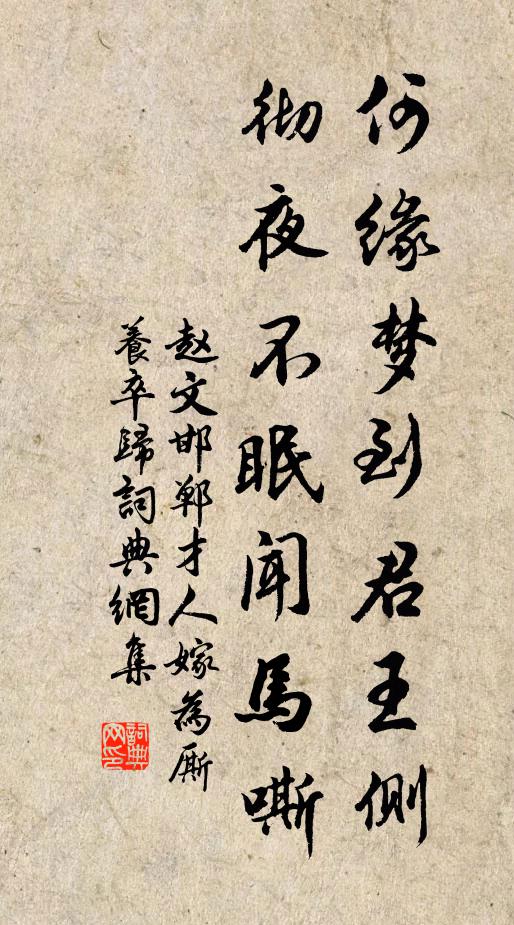 何缘梦到君王侧
彻夜不眠闻馬嘶
赵文邯郸才人嫁為厮
養卒歸詞典網集
詞典
网印